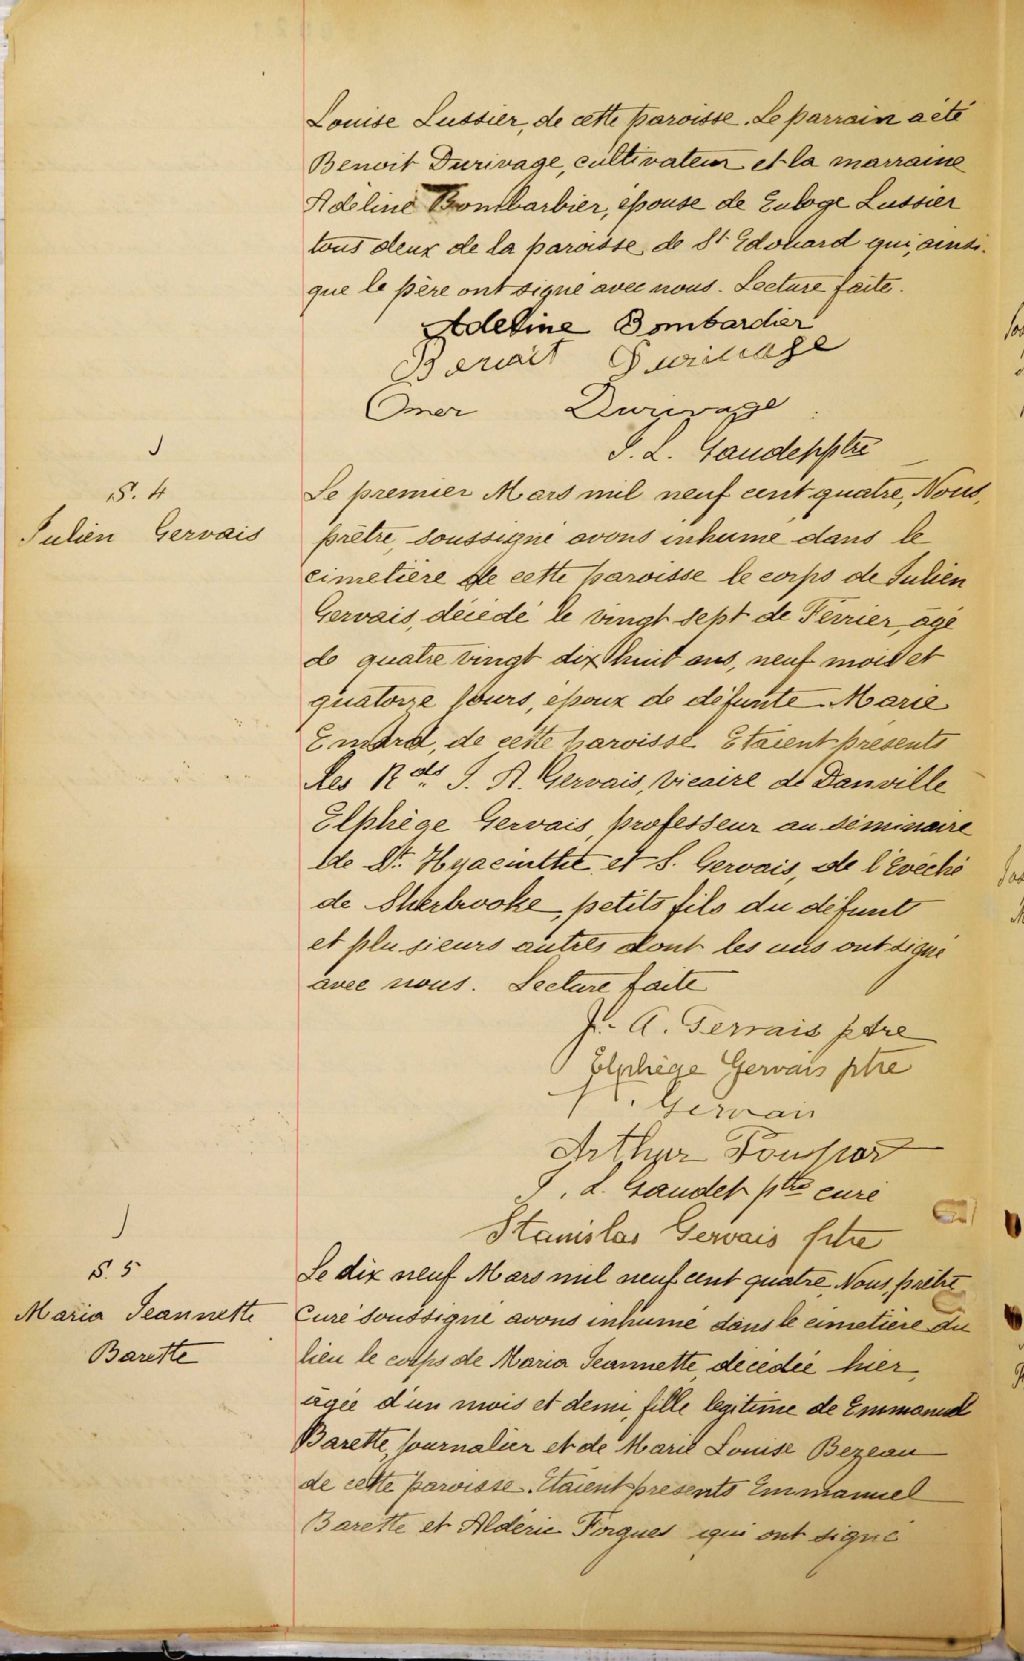 Louise Lussier, de cette paroisse. Le parrain a été
Benoit Durivage, cultivateur et la marraine
Adéline Bombarbier, épouse de Euloge Lussier
tous deux de la paroisse de St Edouard qui, ainsi
que le père ont signé avec nous. Lecture faite.
Adeline Bombardier
Benoit Durivage
Omer Durivage
J. L. Gaudet ptre
S. 4
Julien Gervais
Le premier Mars mil neuf cent quatre, Nous,
prêtre, soussigné avons inhumé dans le
cimetière de cette paroisse le corps de Julien
Gervais, décédé le vingt sept de Février, âgé
de quatre vingt dix huit ans, neuf mois et
quatorze jours, époux de défunte Marie
Emard, de cette paroisse. Etaient présents
les Rds J. A. Gervais, vicaire de Danville
Elphège Gervais, professeur au séminaire
de St. Hyacinthe et S. Gervais, de l'Evêché
de Sherbrooke, petits fils du défunt
et plusieurs autres dont les uns ont signé
avec nous. Lecture faite
J. A. Gervais ptre
Elphège Gervais ptre
Gervais
Arthur
J. L. Gaudet ptre curé
Stanislas Gervais ptre
S. 5
Maria Jeannette
Barette
Le dix neuf Mars mil neuf cent quatre, Nous, prêtre
curé soussigné avons inhumé dans le cimetière du
lieu le corps de Maria Jeannette, décédée hier,
âgée d'un mois et demi, fille legitime de Emmanuel
Barette, journalier et de Marie Louise Bezeau
de cette paroisse. Etaient présents Emmanuel
Barette et Aldéric Forgues qui ont signé